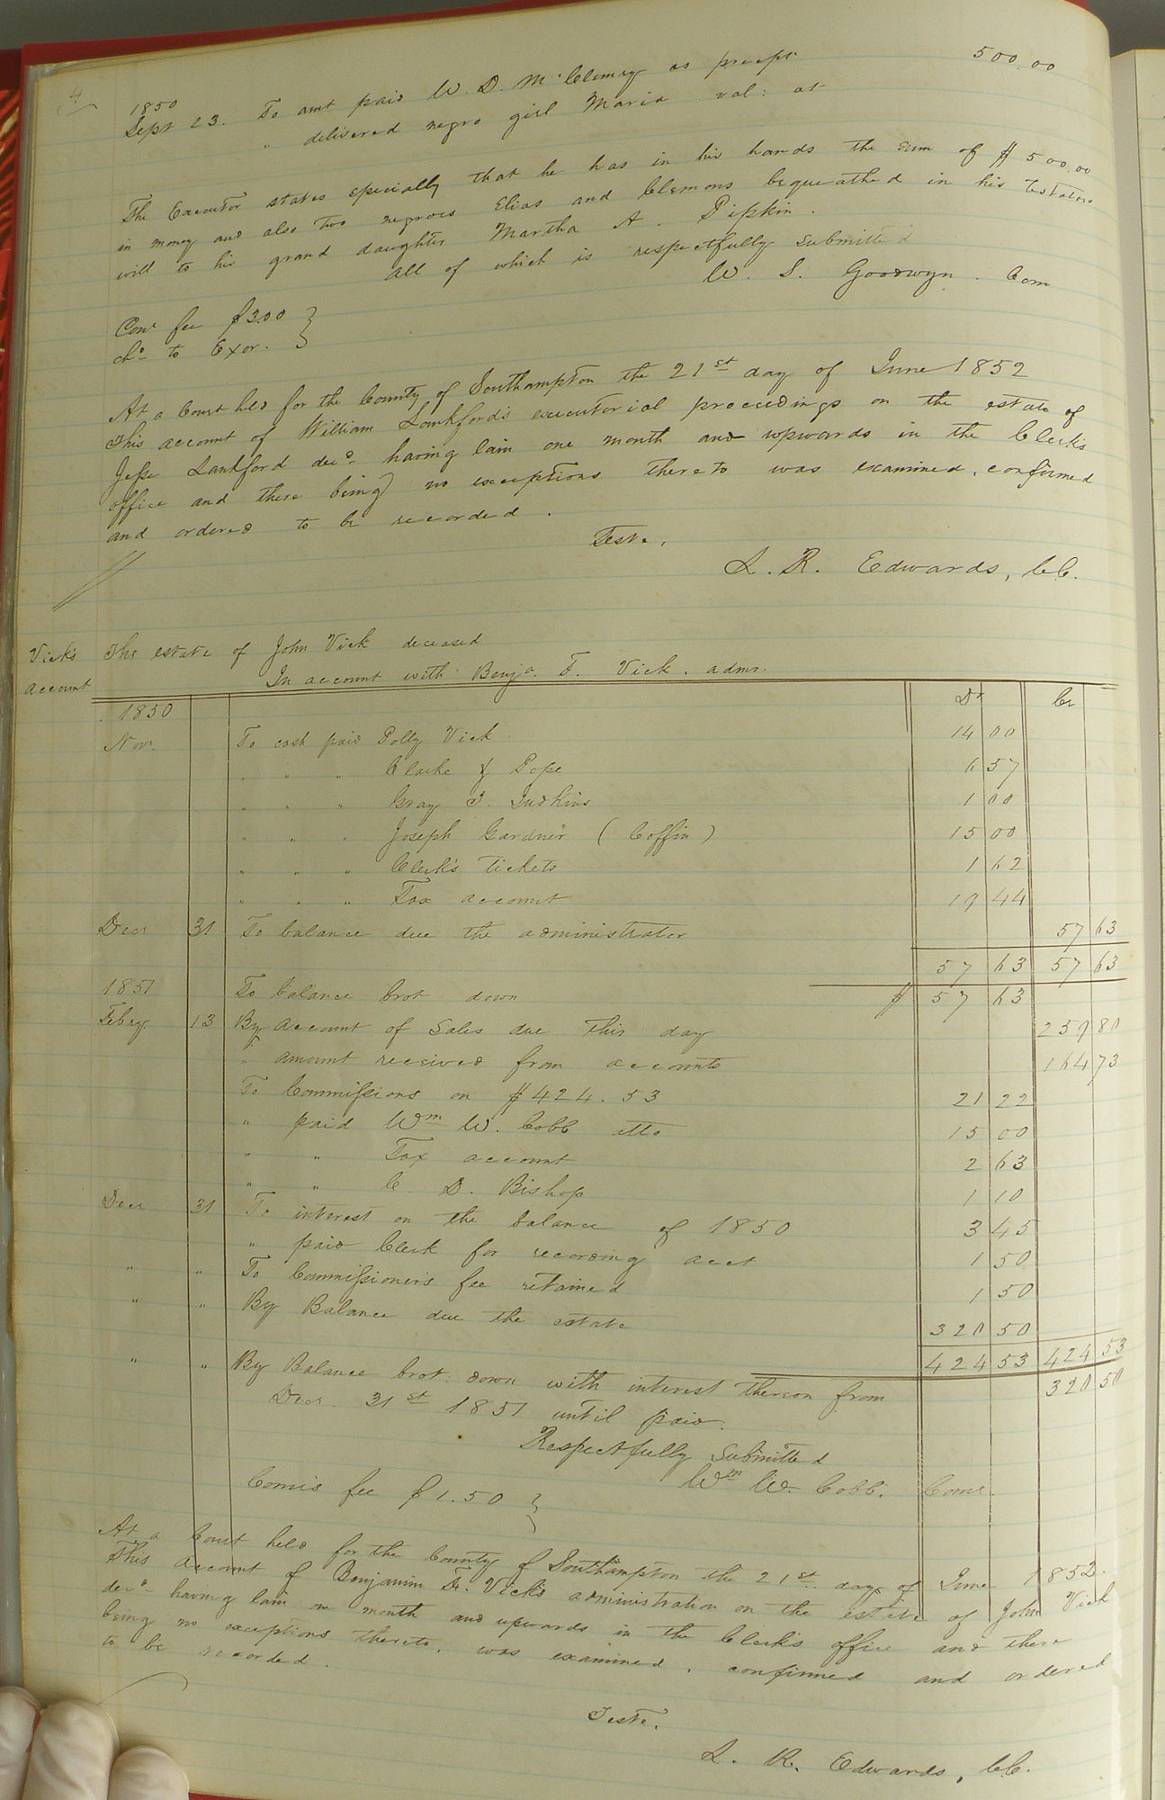 4
1850
Sept 23. To amt paid W. D. McClemny as pr recpt 500.00
" delivered negro girl Maria val: at
The Executor states specially that he has in his hands the sum of $500.00
in money and also two negroes Elias and Clemons bequeathed in his Testators
will to his grand daughter Martha A. Pipkin.
All of which is respectfully submitted
W. S. Goodwyn. Com
Com fee $3.00 }
chd to Exor. }
At a Court held for the County of Southampton the 21st day of June 1852
This account of William Lankford's executorial proceedings on the estate of
Jesse Lankford decd having lain one month and upwards in the Clerk's
office and there being no exceptions thereto was examined, confirmed
and ordered to be recorded.
Teste,
L. R. Edwards, C.C.
Vick's The estate of John Vick deceased
account In account with Benja. F. Vick. admr.
1850 Dr Cr
Nov. To cash paid Polly Vick 14 00
" " " Clarke & Pope 6 57
" " " Gray T. Judkins 1 00
" " " Joseph Gardner (Coffin) 15 00
" " " Clerk's tickets 1 62
" " " Tax account 19 44
Decr 31 To balance due the administrator 57 63
57 63 57 63
1851 To balance brot down $ 57 63
Feby 13 By account of Sales due this day 259 80
" amount received from accounts 164 73
To Commissions on $424.53 21 22
" paid Wm W. Cobb atto 15 00
" " Tax account 2 63
" " C. D. Bishop 1 10
Decr 31 To interest on the balance of 1850 3 45
" paid Clerk for recording acct 1 50
" " To Commissioner's fee retained 1 50
" " By Balance due the estate 320 50
424 53 424 53
" " By Balance brot down with interest thereon from 320 50
Decr 31st 1851 until paid.
Respectfully Submitted
Wm W. Cobb. Comr.
Comr's fee $1.50 }
At a Court held for the County of Southampton the 21st day of June 1852.
This account of Benjamin F. Vick's administration on the estate of John Vick
decd having lain one month and upwards in the Clerk's office and there
being no exceptions thereto, was examined, confirmed and ordered
to be recorded.
Teste,
L. R. Edwards, C.C.